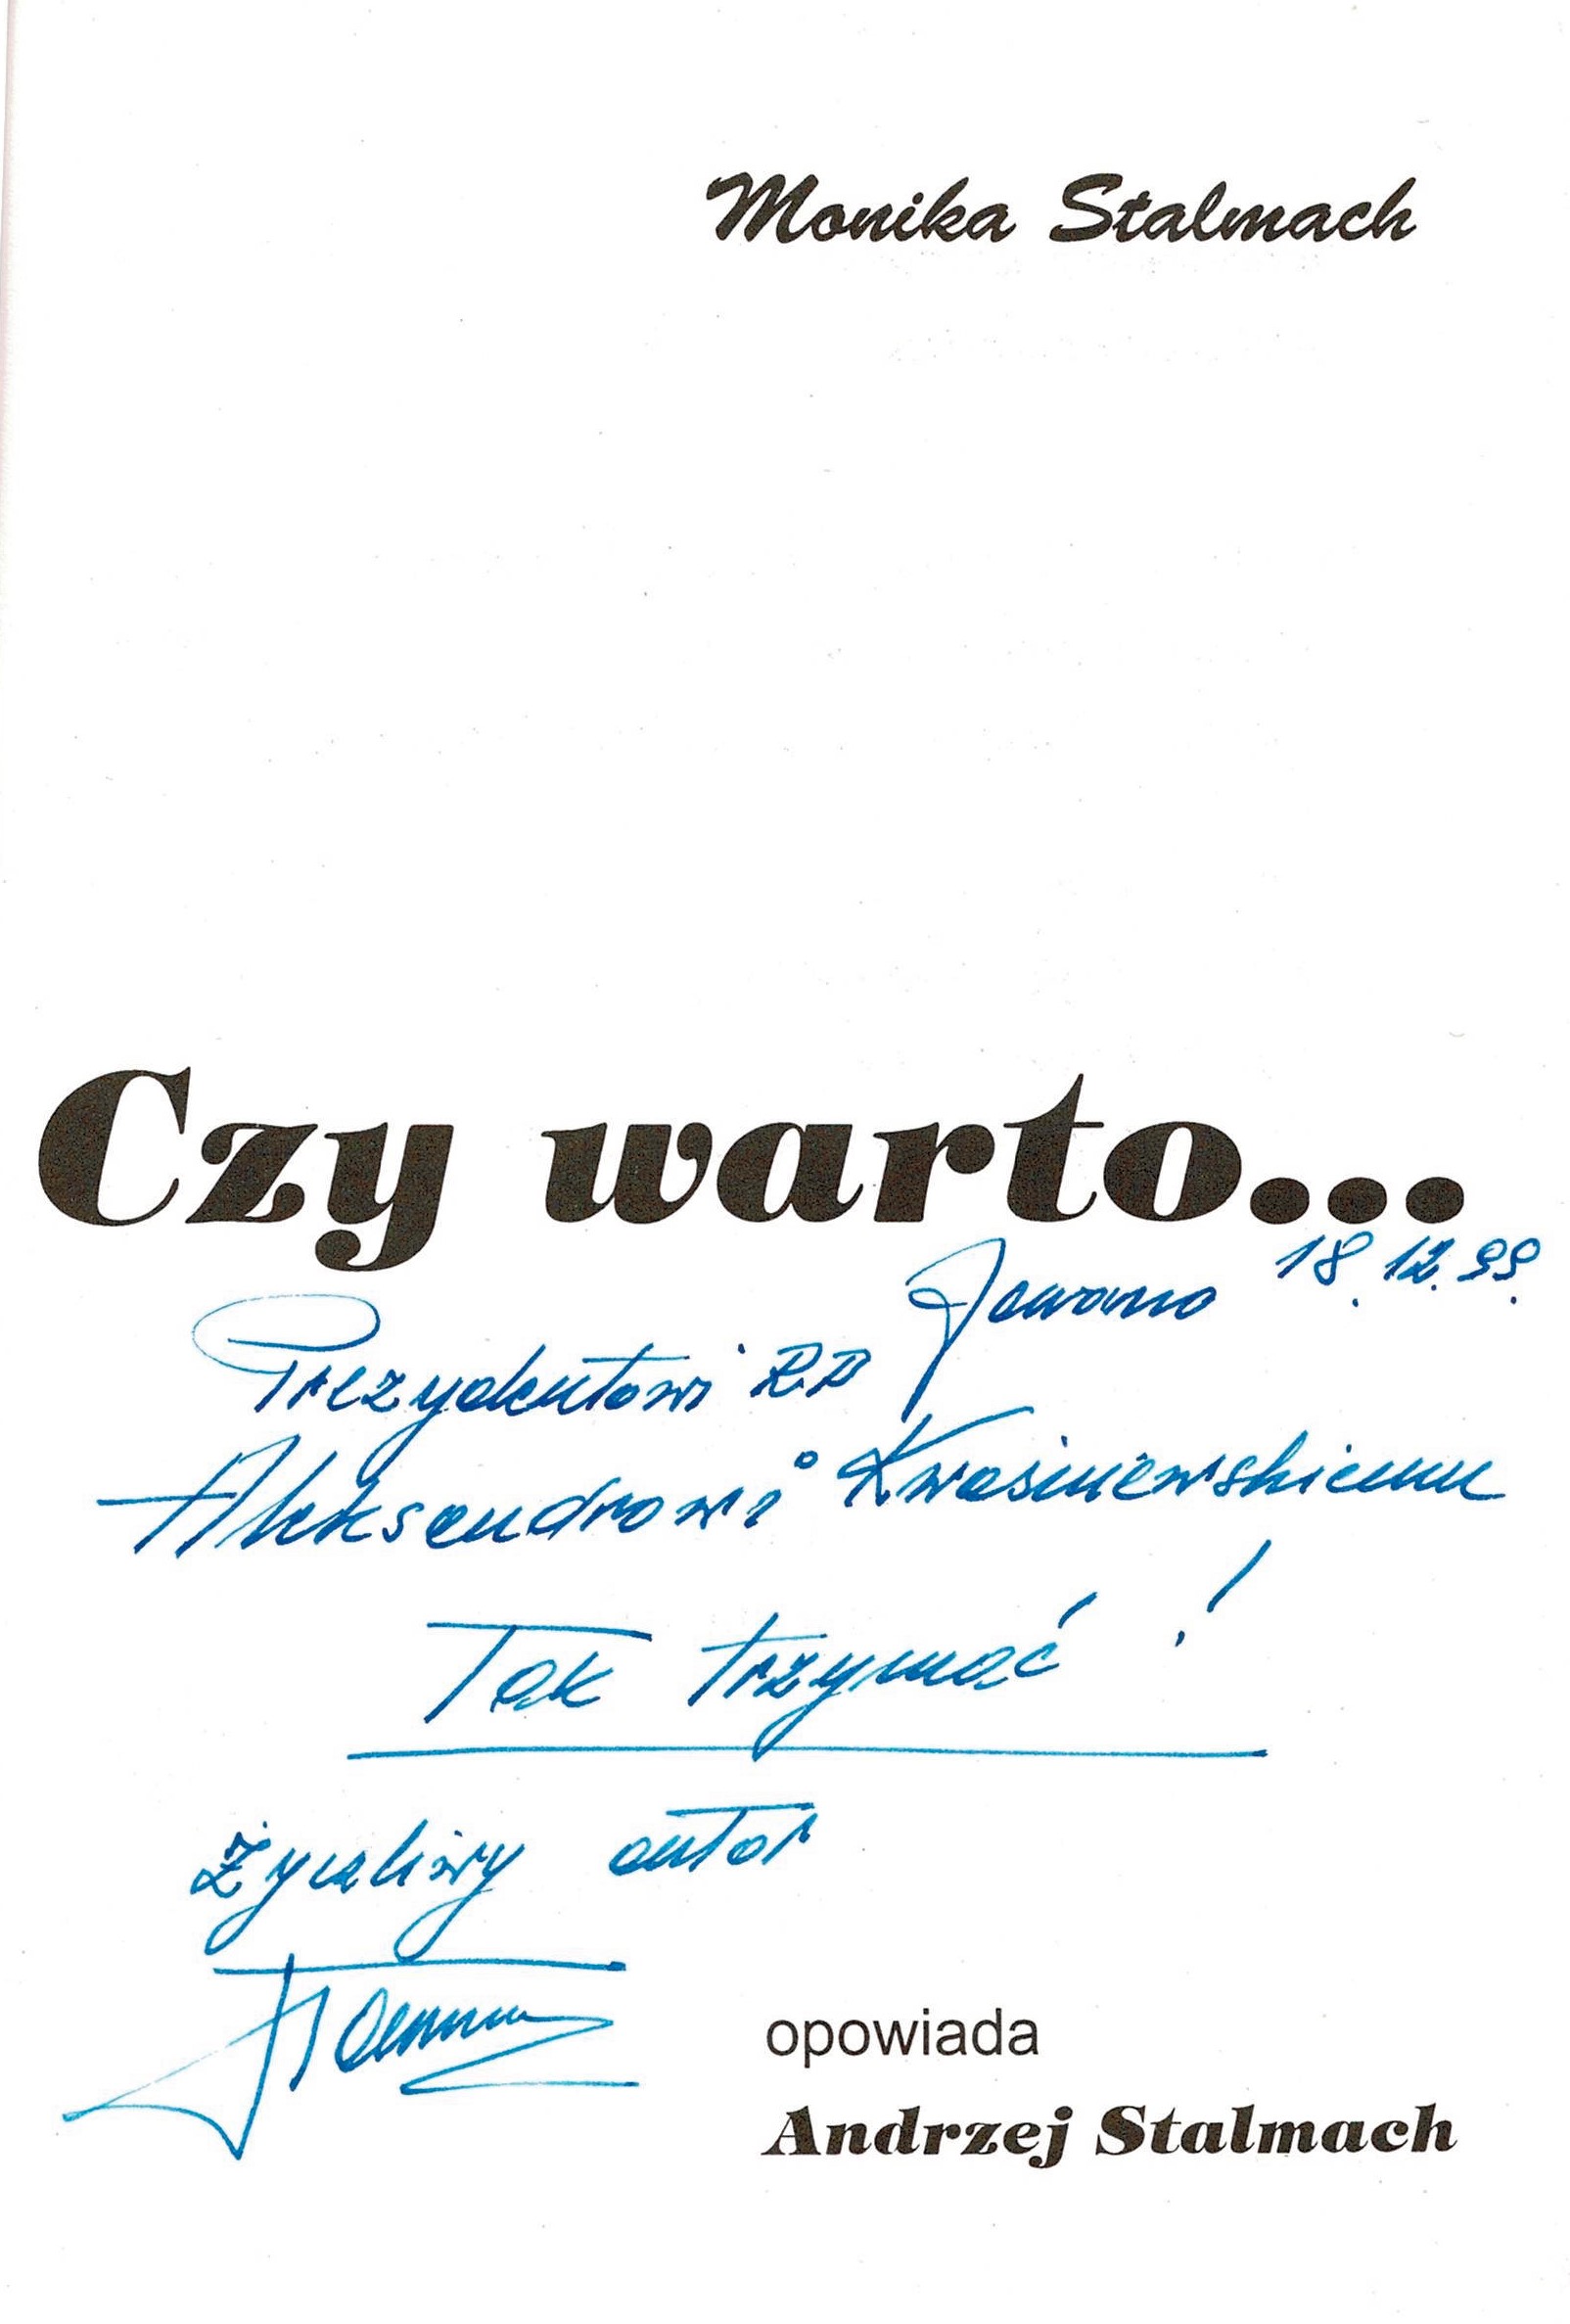 Monika Stalmach
Czy warto...
18.12.99.
Prezydentowi RP
Aleksandrowi Kwaśniewskiemu
Tak trzymać!
Życzliwy autor
opowiada
Andrzej Stalmach